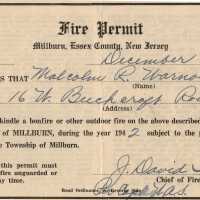 Fire Permit
Millburn, Essex County, New Jersey
December
S THAT Malcolm R. Warno
(Name)
16 W. Beechcroft Roa
(Address)
kindle a bonfire or other outdoor fire on the above described
of MILLBURN, during the year 1942 subject to the
Township of Millburn.
this permit must
fire unguarded or
ny time.
J. David
Chief of Fire